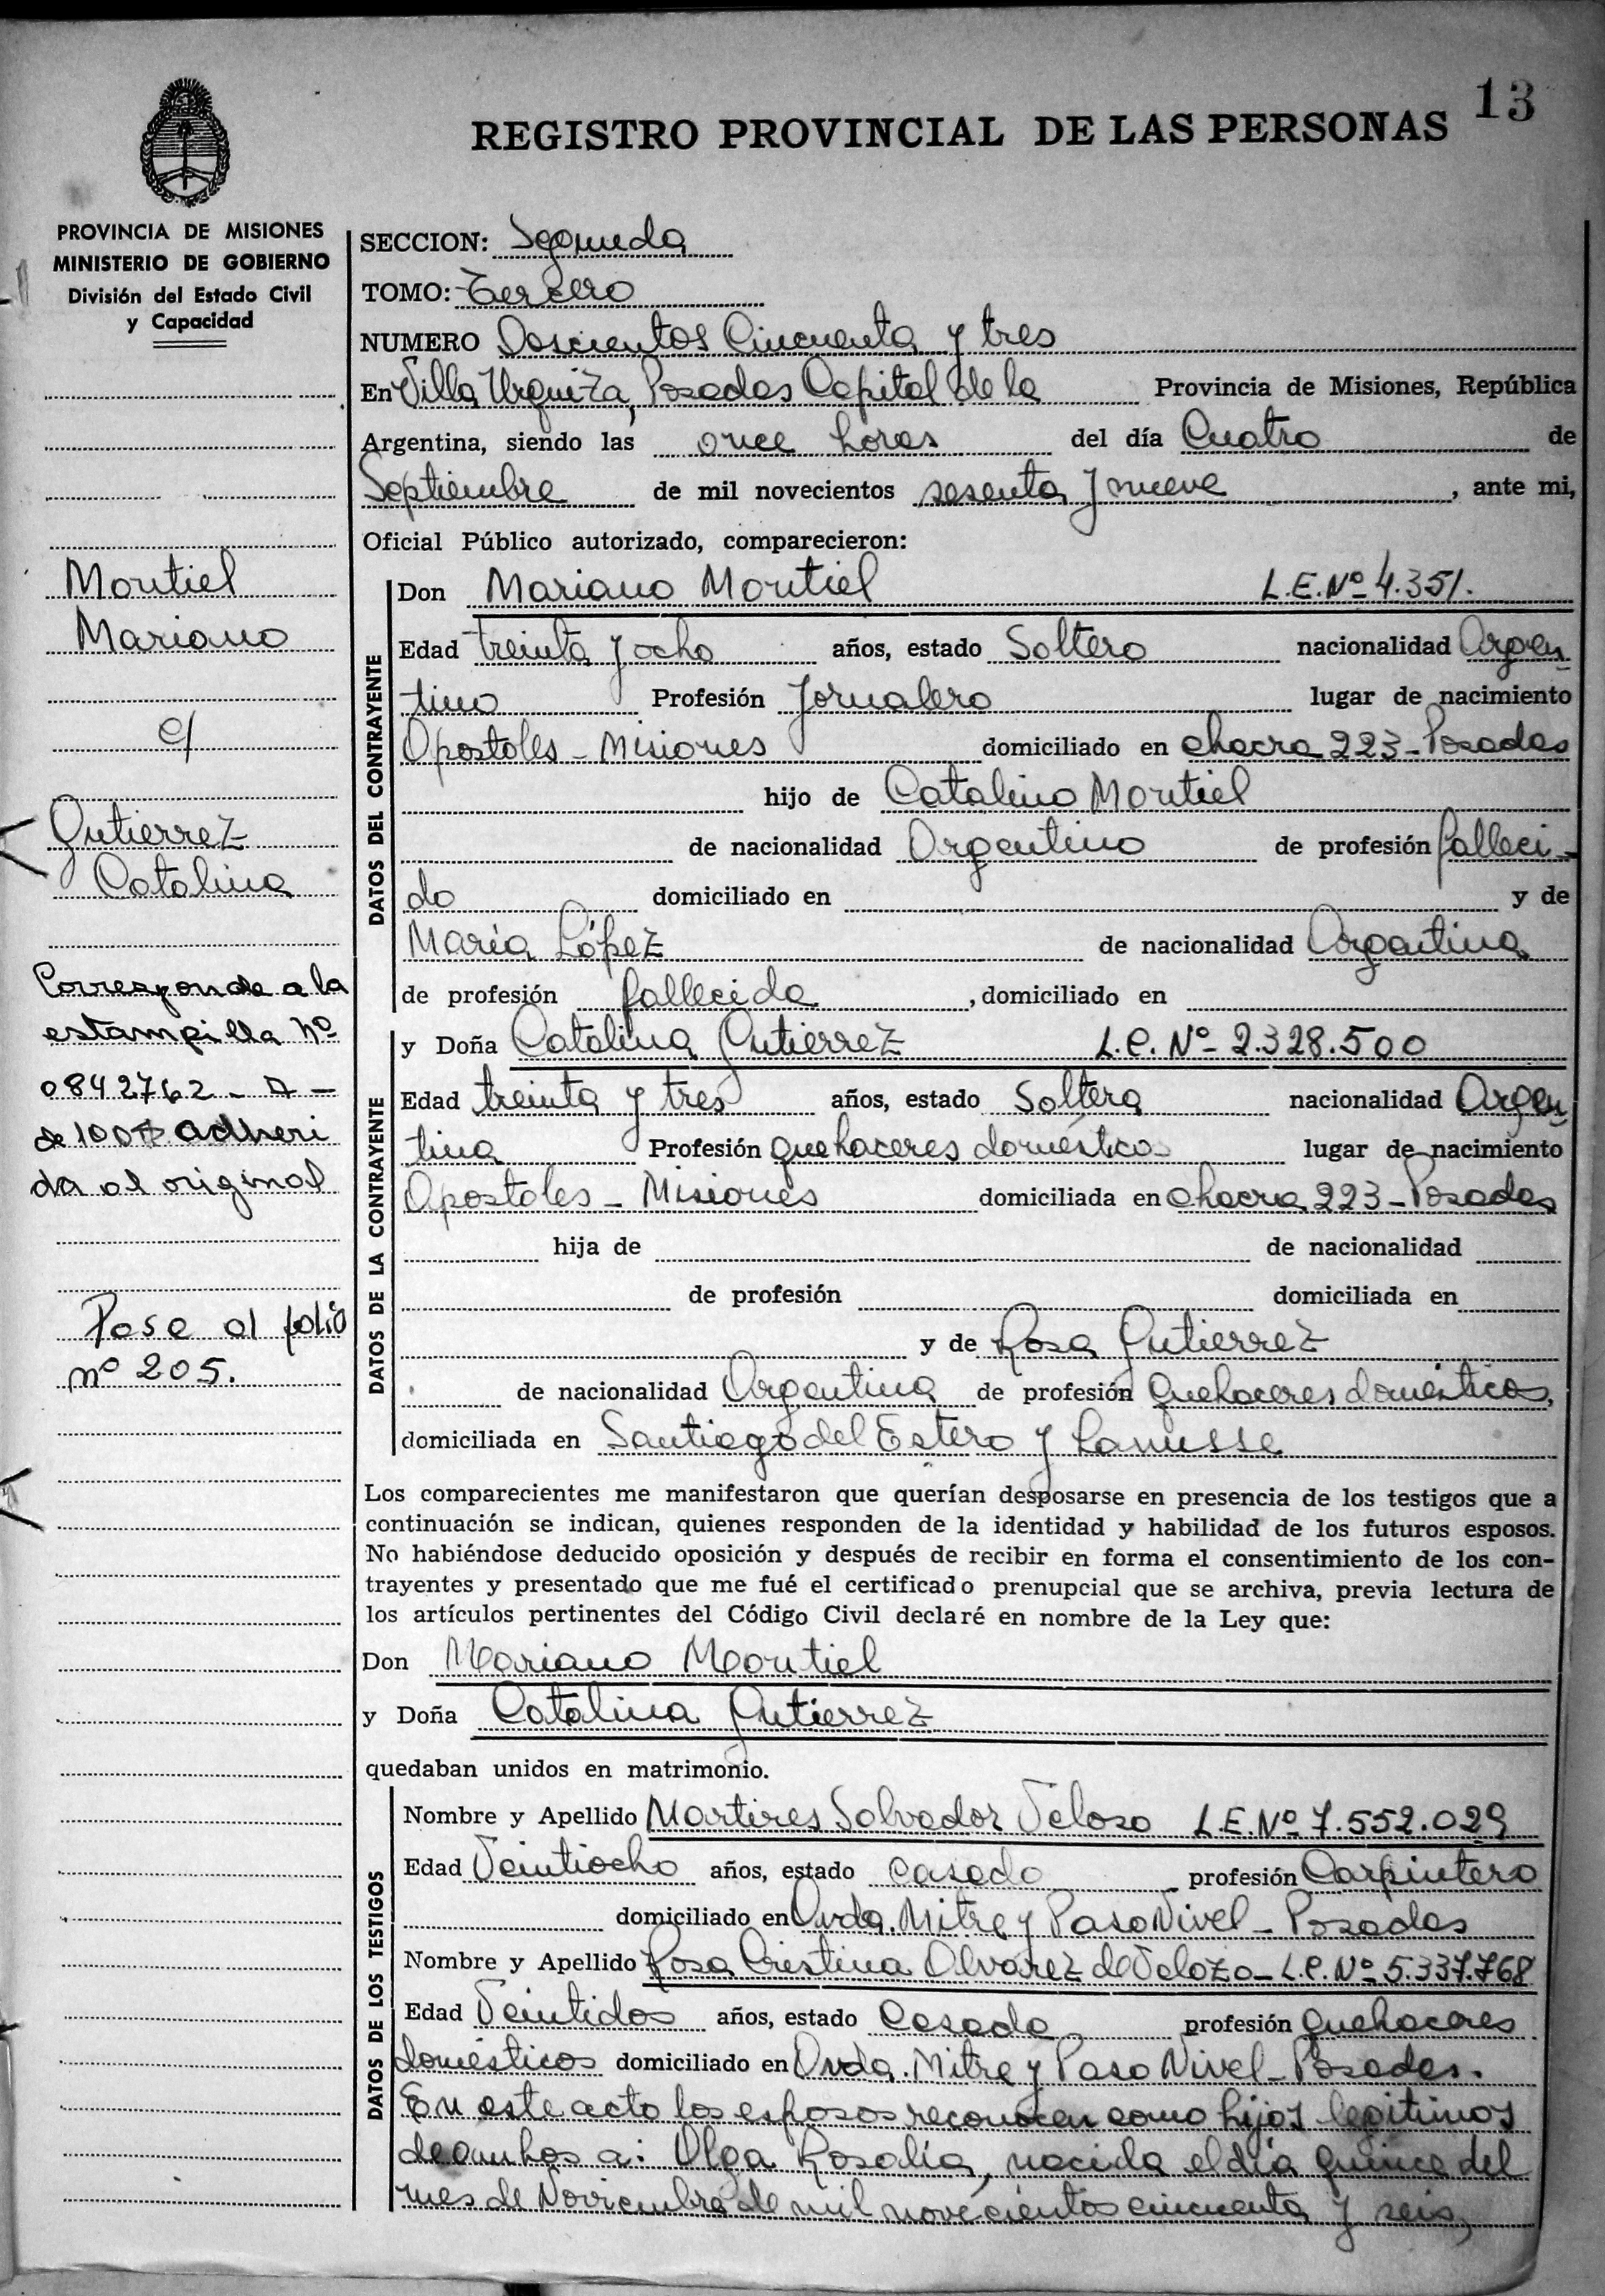 13
REGISTRO PROVINCIAL DE LAS PERSONAS
PROVINCIA DE MISIONES
MINISTERIO DE GOBIERNO
División del Estado Civil
y Capacidad
Montiel
Mariano
c/
Gutierrez
Catalina
Corresponde a la
estampilla Nº
0842762 - A -
de 100$ adheri
da al original
Pase al folio
nº 205.
SECCION: Segunda
TOMO: Tercero
NUMERO Doscientos Cincuenta y tres
En Villa Urquiza, Posadas Capital de la Provincia de Misiones, República
Argentina, siendo las once horas del día Cuatro de
Septiembre de mil novecientos sesenta y nueve, ante mi,
Oficial Público autorizado, comparecieron:
DATOS DEL CONTRAYENTE
Don Mariano Montiel L.E.Nº 4.351.
Edad treinta y ocho años, estado Soltero nacionalidad Argen
tino Profesión Jornalero lugar de nacimiento
Apostoles - Misiones domiciliado en chacra 223 - Posadas
hijo de Catalino Montiel
de nacionalidad Argentino de profesión falleci-
do domiciliado en y de
María López de nacionalidad Argentina
de profesión fallecida, domiciliado en
DATOS DE LA CONTRAYENTE
y Doña Catalina Gutierrez L.C. Nº 2.328.500
Edad treinta y tres años, estado Soltera nacionalidad Argen
tina Profesión quehaceres domésticos lugar de nacimiento
Apostoles - Misiones domiciliada en chacra 223 - Posadas
hija de de nacionalidad
de profesión domiciliada en
y de Rosa Gutierrez
de nacionalidad Argentina de profesión Quehaceres domésticos,
domiciliada en Santiago del Estero y Lanusse
Los comparecientes me manifestaron que querían desposarse en presencia de los testigos que a
continuación se indican, quienes responden de la identidad y habilidad de los futuros esposos.
No habiéndose deducido oposición y después de recibir en forma el consentimiento de los con-
trayentes y presentado que me fué el certificado prenupcial que se archiva, previa lectura de
los artículos pertinentes del Código Civil declaré en nombre de la Ley que:
Don Mariano Montiel
y Doña Catalina Gutierrez
quedaban unidos en matrimonio.
DATOS DE LOS TESTIGOS
Nombre y Apellido Martires Salvador Veloso L.E.Nº 7.552.029
Edad Veintiocho años, estado casado profesión Carpintero
domiciliado en Avda. Mitre y Paso Nivel - Posadas
Nombre y Apellido Rosa Cristina Alvarez de Velozo - L.C. Nº 5.337.768
Edad Veintidos años, estado Casada profesión Quehaceres
domésticos domiciliado en Avda. Mitre y Paso Nivel - Posadas.
En este acto los esposos reconocen como hijos legitimos
de ambos a: Olga Rosalía, nacida el día quince del
mes de Noviembre de mil novecientos cincuenta y seis,